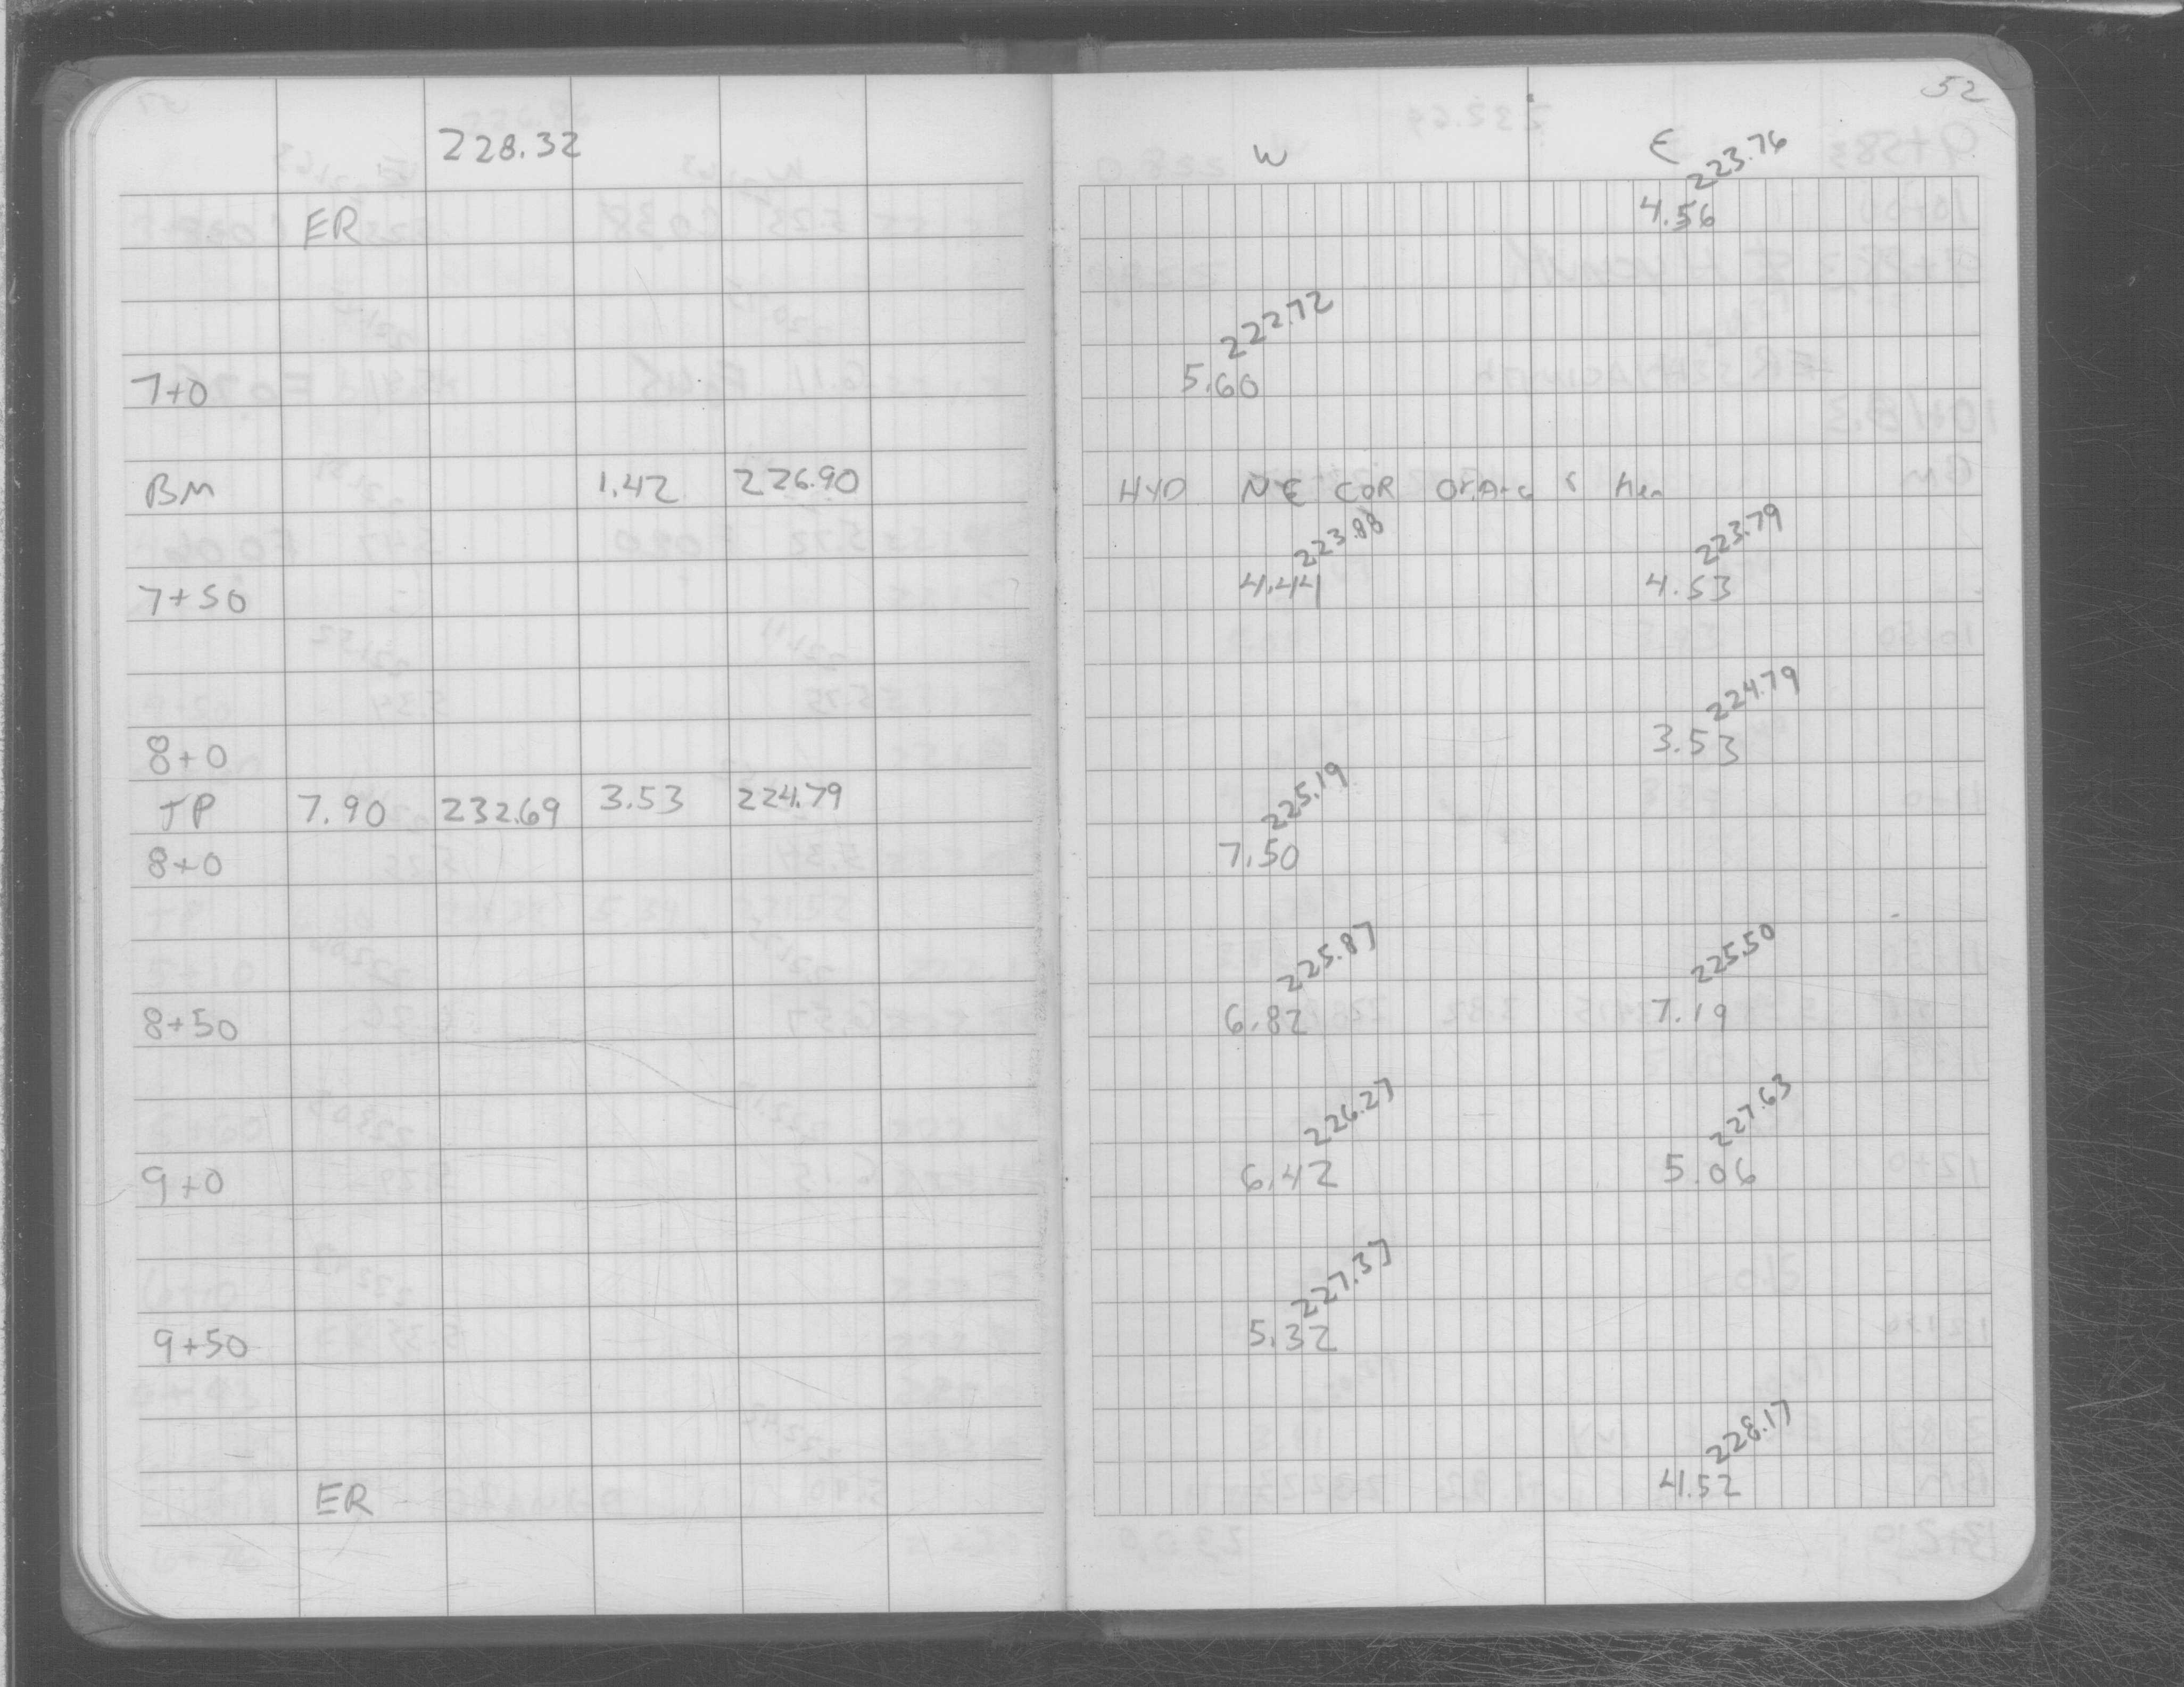 52
228.32 W E
223.76
ER 4.56
222.72
7+0 5.60
BM 1.42 226.90 HYD NE COR Orang &
223.88 223.79
7+50 4.44 4.53
224.79
8+0 3.53
TP 7.90 232.69 3.53 224.79
225.19
8+0 7.50
225.87 225.50
8+50 6.82 7.19
226.27 227.63
9+0 6.42 5.06
227.37
9+50 5.32
228.17
ER 4.52